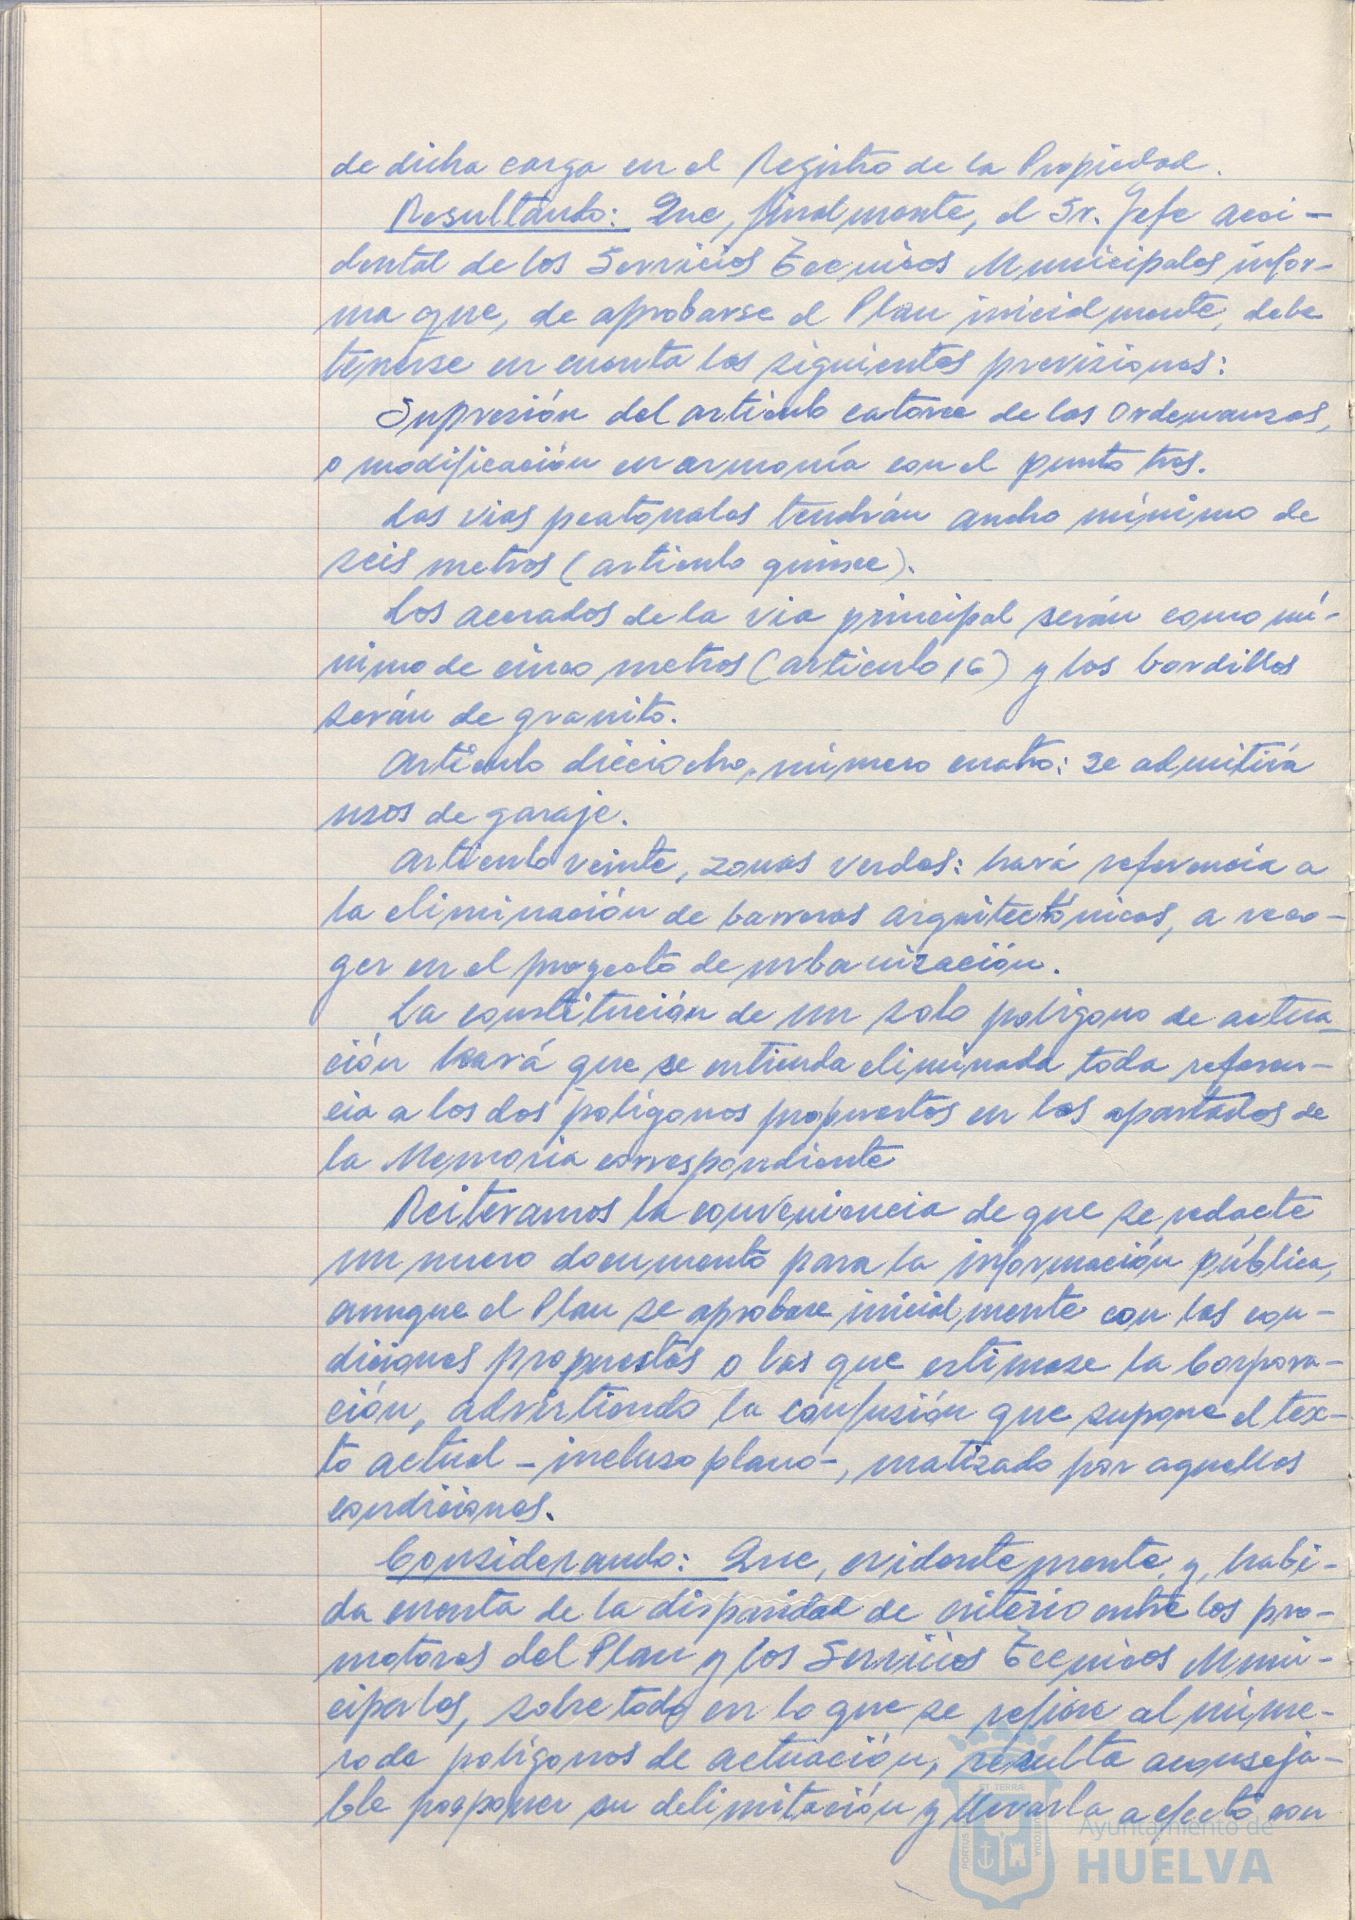 de dicha carga en el Registro de la Propiedad.
Resultando: Que, finalmente, el Sr. Jefe acci-
dental de los Servicios Técnicos Municipales infor-
ma que, de aprobarse el Plan inicialmente, debe
tenerse en cuenta las siguientes previsiones:
Supresión del artículo catorce de las Ordenanzas,
o modificación en armonía con el punto tres.
Las vías peatonales tendrán ancho mínimo de
seis metros (artículo quince).
Los acerados de la vía principal serán como mí-
nimo de cinco metros (artículo 16) y los bordillos
serán de granito.
Artículo dieciocho, número cuatro: se admitirá
usos de garaje.
Artículo veinte, zonas verdes: hará referencia a
la eliminación de barreras arquitectónicas, a reco-
ger en el proyecto de urbanización.
La constitución de un solo polígono de actua-
ción hará que se entienda eliminada toda referen-
cia a los dos polígonos propuestos en los apartados de
la Memoria correspondiente
Reiteramos la conveniencia de que se redacte
un nuevo documento para la información pública,
aunque el Plan se aprobase inicialmente con las con-
diciones propuestas o las que estimase la Corpora-
ción, advirtiendo la confusión que supone el tex-
to actual - incluso plano -, matizado por aquellas
condiciones.
Considerando: Que, evidentemente, y, habi-
da cuenta de la disparidad de criterio entre los pro-
motores del Plan y los Servicios Técnicos Muni-
cipales, sobre todo en lo que se refiere al núme-
ro de polígonos de actuación, resulta aconseja-
ble posponer su delimitación y llevarla a efecto con
ST TERRAE
PORTUS
CUSTODIA
Ayuntamiento de
HUELVA